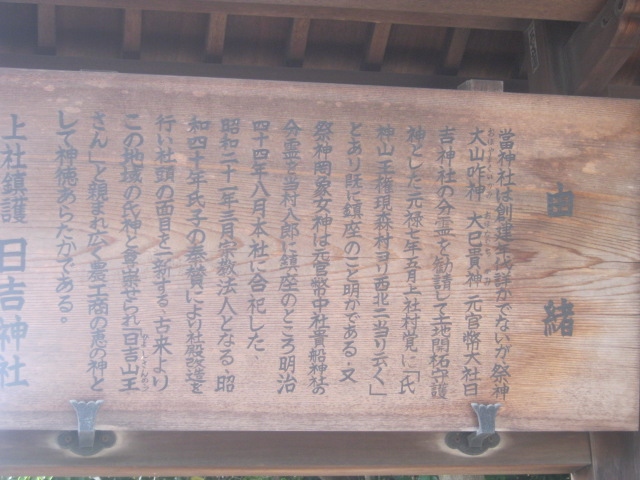 由緒
當神社は創建年代詳かでないが祭神
大山咋神 大巳貴神 元官幣大社日
吉神社の分霊を勧請して土地開拓守護
神とした元禄七年五月上社村覚に「氏
神山王権現森村ヨリ西北ニ当リ云々」
とあり既に鎮座のこと明かである、又
祭神岡象女神は元官幣中社貴船神社の
分霊を当村八郎に鎮座のところ明治
四十四年八月本社に合祀した、
昭和二十一年三月宗教法人となる、昭
和四十年氏子の奉賛により社殿改造を
行い社頭の面目を一新する、古来より
この地域の氏神と尊崇せられ「日吉山王
さん」と親まれ広く農工商の恵の神と
して神徳あらたかである。
上社鎮護 日吉神社